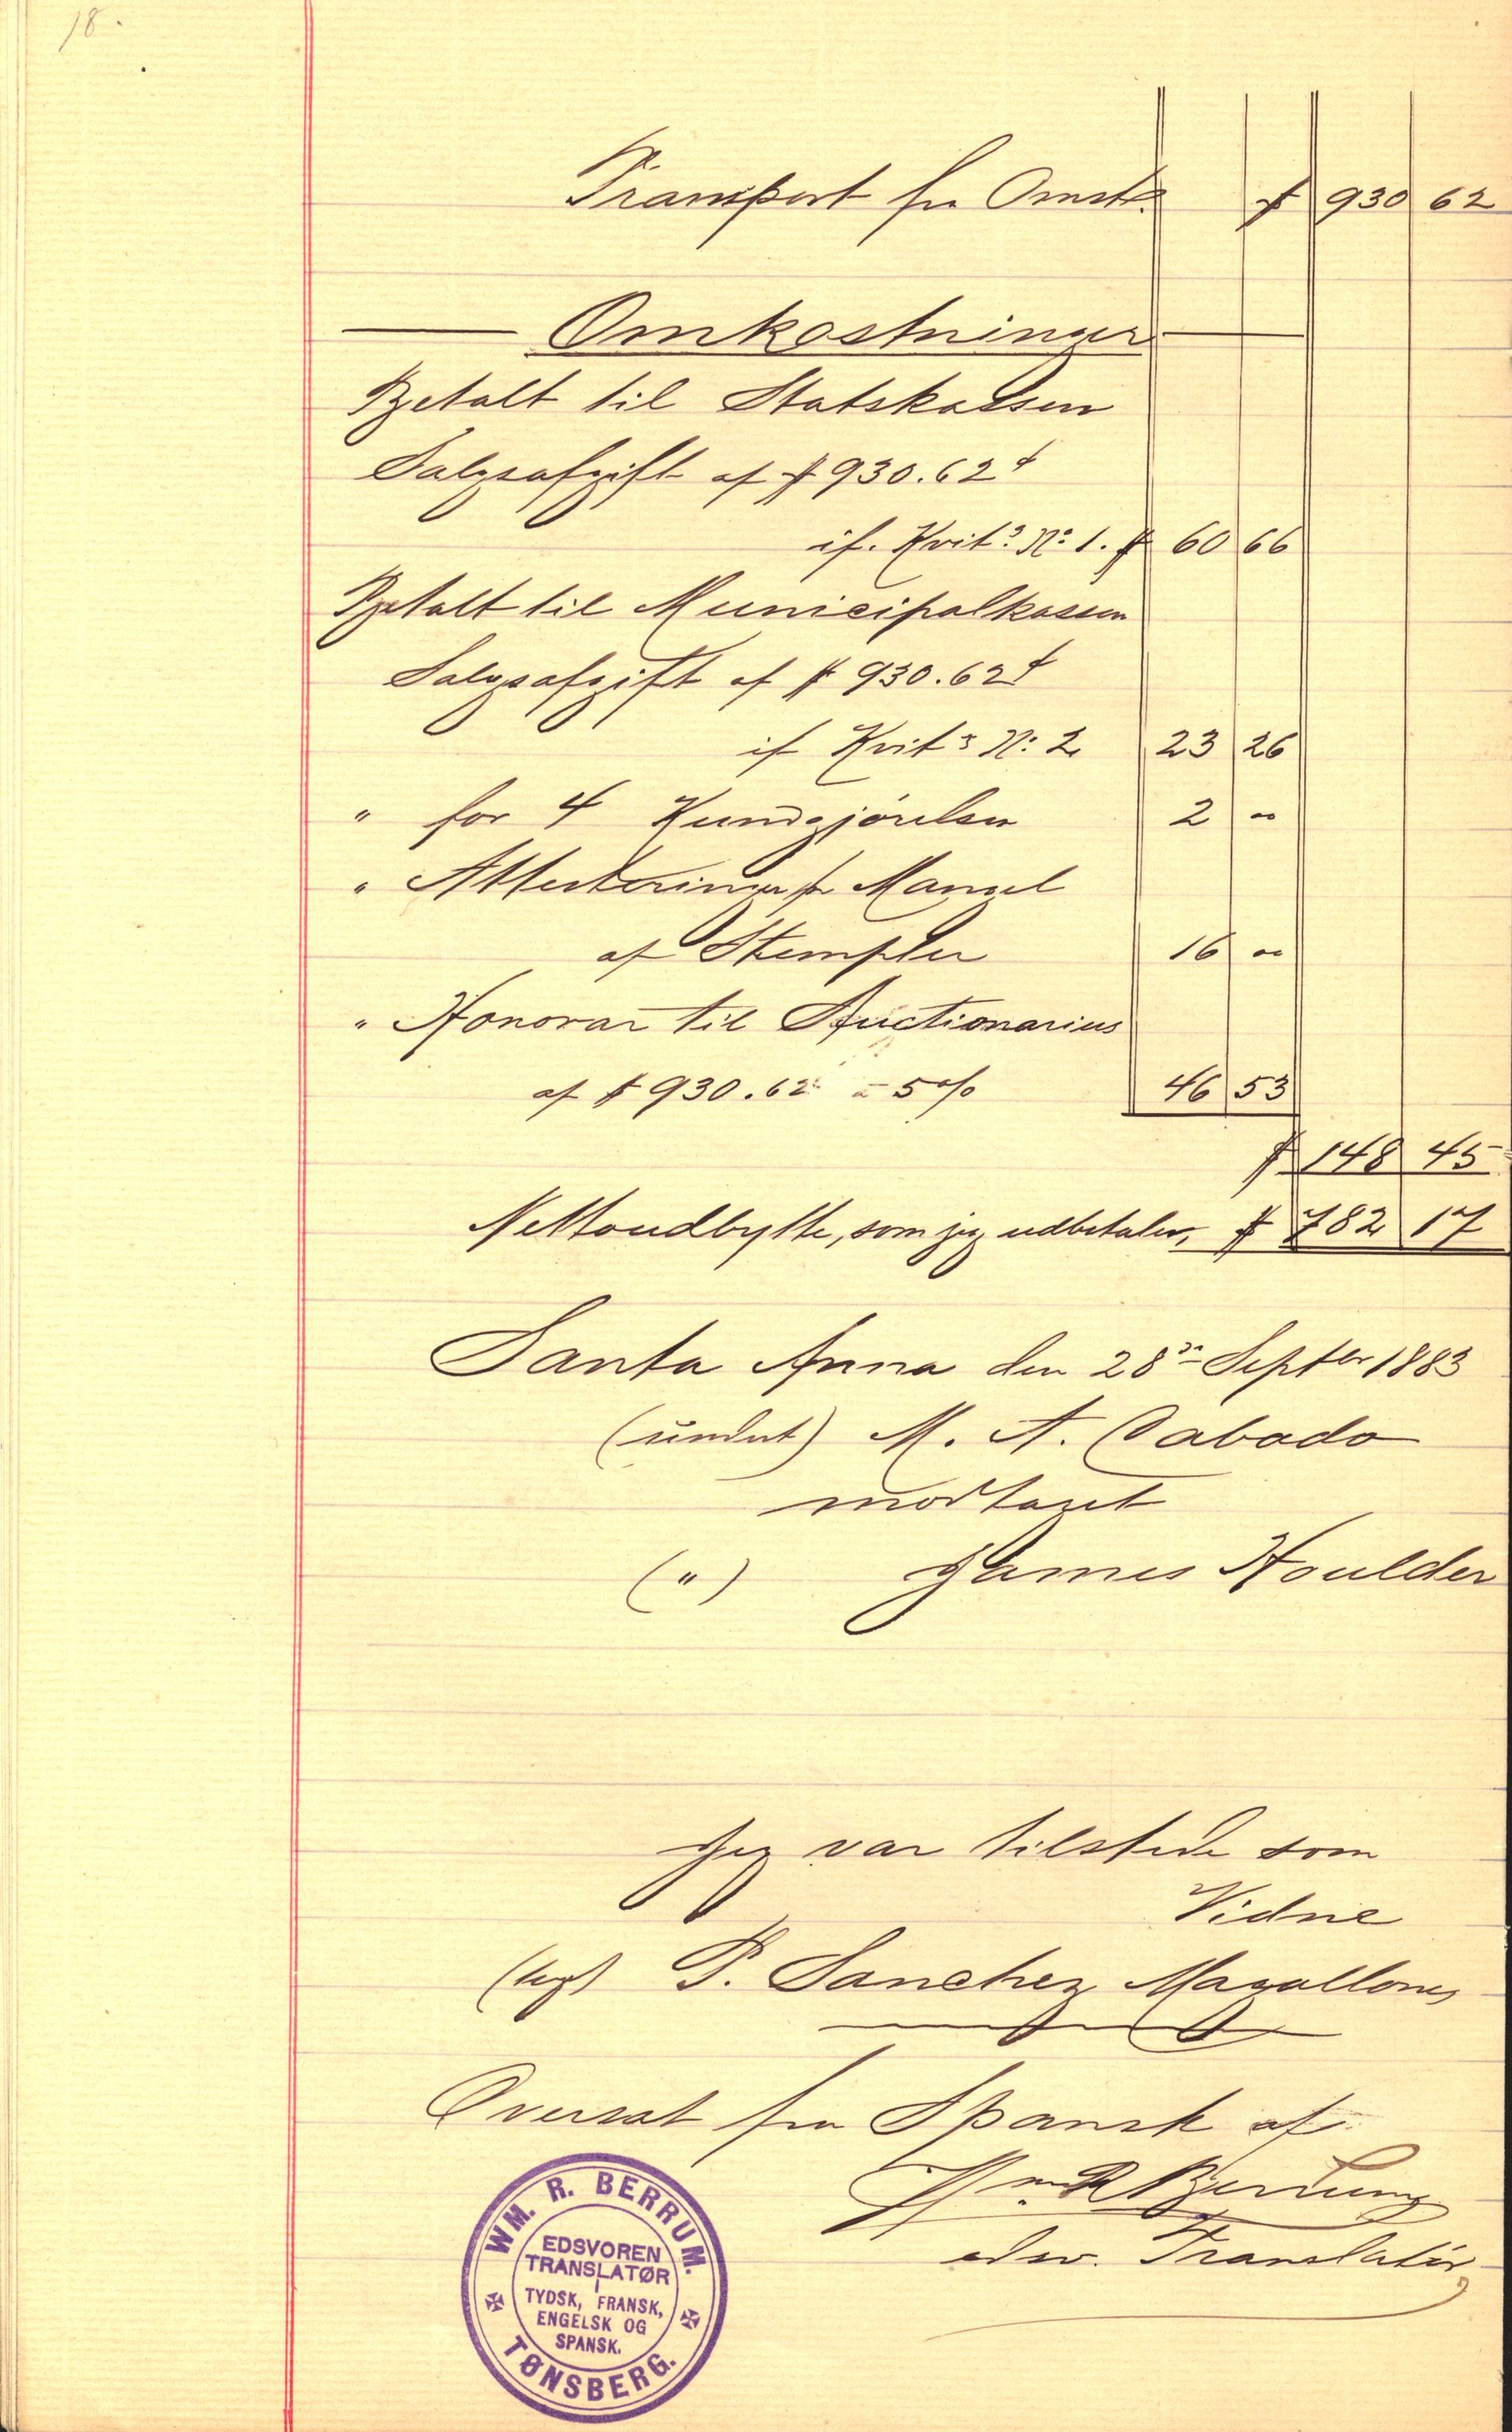 18.
Transport fra Omst. $ 930 62
Omkostninger
Betalt til Statskassen
Salgsafgift af $ 930.62¢
if. Kvitg No. 1. $ 60 66
Betalt til Municipalkassen
Salgsafgift af $ 930.62¢
if Kvitg No. 2 23 26
" for 4 Kundgjørelser 2 "
" Attesteringer for Mangel
af Stempler 16 "
" Honorar til Auctionarius
af $ 930.62 = 5 % 46 53
$ 148 45
Nettoudbytte, som jeg udbetaler, $ 782 17
Santa Anna den 28de Septbr 1883
(undert) M. A. Dabado
modtaget
(") James Houlder
Jeg var tilstede som
Vidne
(sign) P. Sanchez Magallones
Oversat fra Spansk af
Wm R Berrum
edsv. Translatør
WM. R. BERRUM.
EDSVOREN
TRANSLATØR
I
TYDSK, FRANSK,
ENGELSK OG
SPANSK.
TØNSBERG.